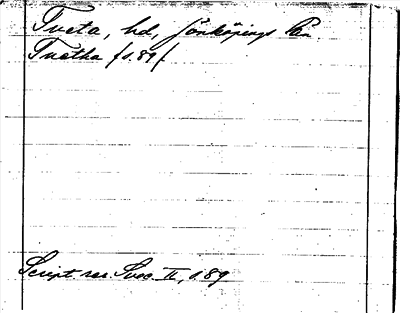 Tveta, hd, Jönköpings län.
Tuetha (s. 89)
Script. rer. Svec. II, s. 89